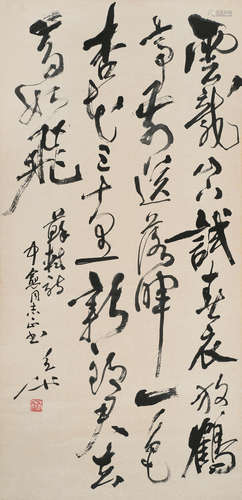 雲龍山下試春衣放鶴
亭前送落暉一色
杏花三十里新郎君去
馬如飛
蘇軾詩
同志正書